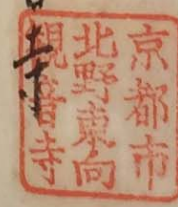 京都市
北野東向
観音寺